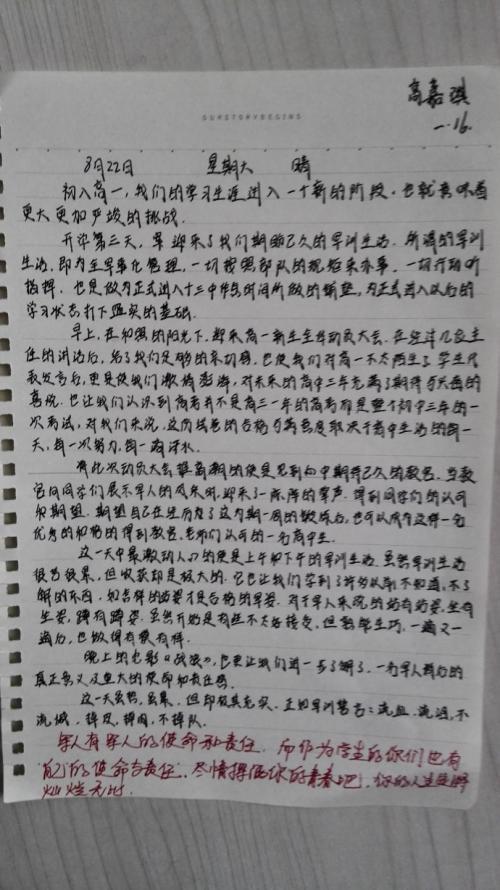 高嘉琪
一.16.
OURSTORYBEGINS
8月22日 星期六 晴
初入高一,我们的学习生涯进入一个新的阶段。也就意味着
更大更加严峻的挑战。
开学第三天,迎来了我们期盼已久的军训生活。所谓的军训
生活,即为全军事化管理,一切按照部队的规矩来办事。一切行动听
指挥。也是做为正式进入十三中学的时间所做的,为正式进入以后的
学习状态打下坚实的基础。
早上,在的阳光下,迎来高一新生全体动员大会。在经过几位主
任的讲话后,给了我们足够的,也使我们对高一不太陌生了。学生代
表发言后,更是使我们激情澎湃,对未来的高中三年充满了期待与美好的
喜悦。也让我们认识到高考并不是高三一年的高考而是整个高中三年的一
次考试,对我们来说,这的合格与取决于高中生活的每一
天,每一次努力,每一滴汗水。
有此次动员大会最的便是见到心中期待已久的教官。当教
官向同学们展示军人的风采时,迎来了一阵阵的掌声。得到同学们的认可
和期望。期望自己在经历为了这为期一周的后,也可以成为这样一名
优秀的和的得到教官、老师们认可的一名高中生。
这一天中最激动人心的便是上午和下午的军训生活。虽然军训生活
很苦很累,但收获却是极大的。它也让我们学到了许多以前不知道、不了
解的东西,如怎样的站姿才是合格的军姿。对于军人来说的站有站姿,坐有
坐姿,蹲有蹲姿。虽然开始是有些不太能接受,但熟能生巧,一遍又一
遍后,也做得有模有样。
晚上的电影《战狼》,也更让我们进一步了解了,一名军人背后的
真正意义及重大的使命和责任感。
这一天虽苦,虽累,但却极其充实。正如军训誓言:流血、流汗、不
流泪,掉皮、掉肉、不掉队。
军人有军人的使命和责任,而作为学生的你们也有
自己的使命与责任,尽情挥洒你的青春吧!你的人生定将
灿烂无比.